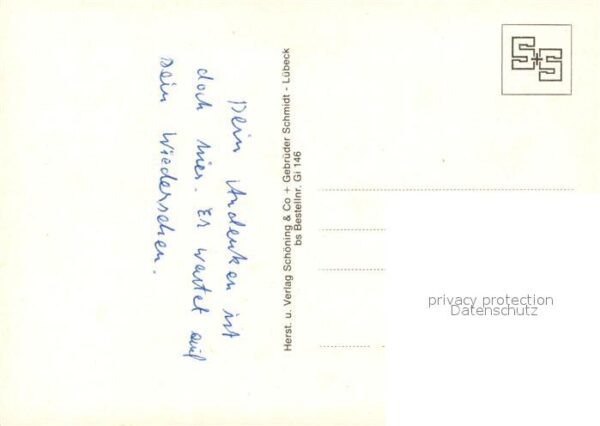 Dein Andenken ist
doch hier. Er wartet auf
Dein Wiedersehen.
Herst. u. Verlag Schöning & Co + Gebrüder Schmidt - Lübeck
bs Bestellnr. Gi 146
S+S
privacy protection
Datenschutz